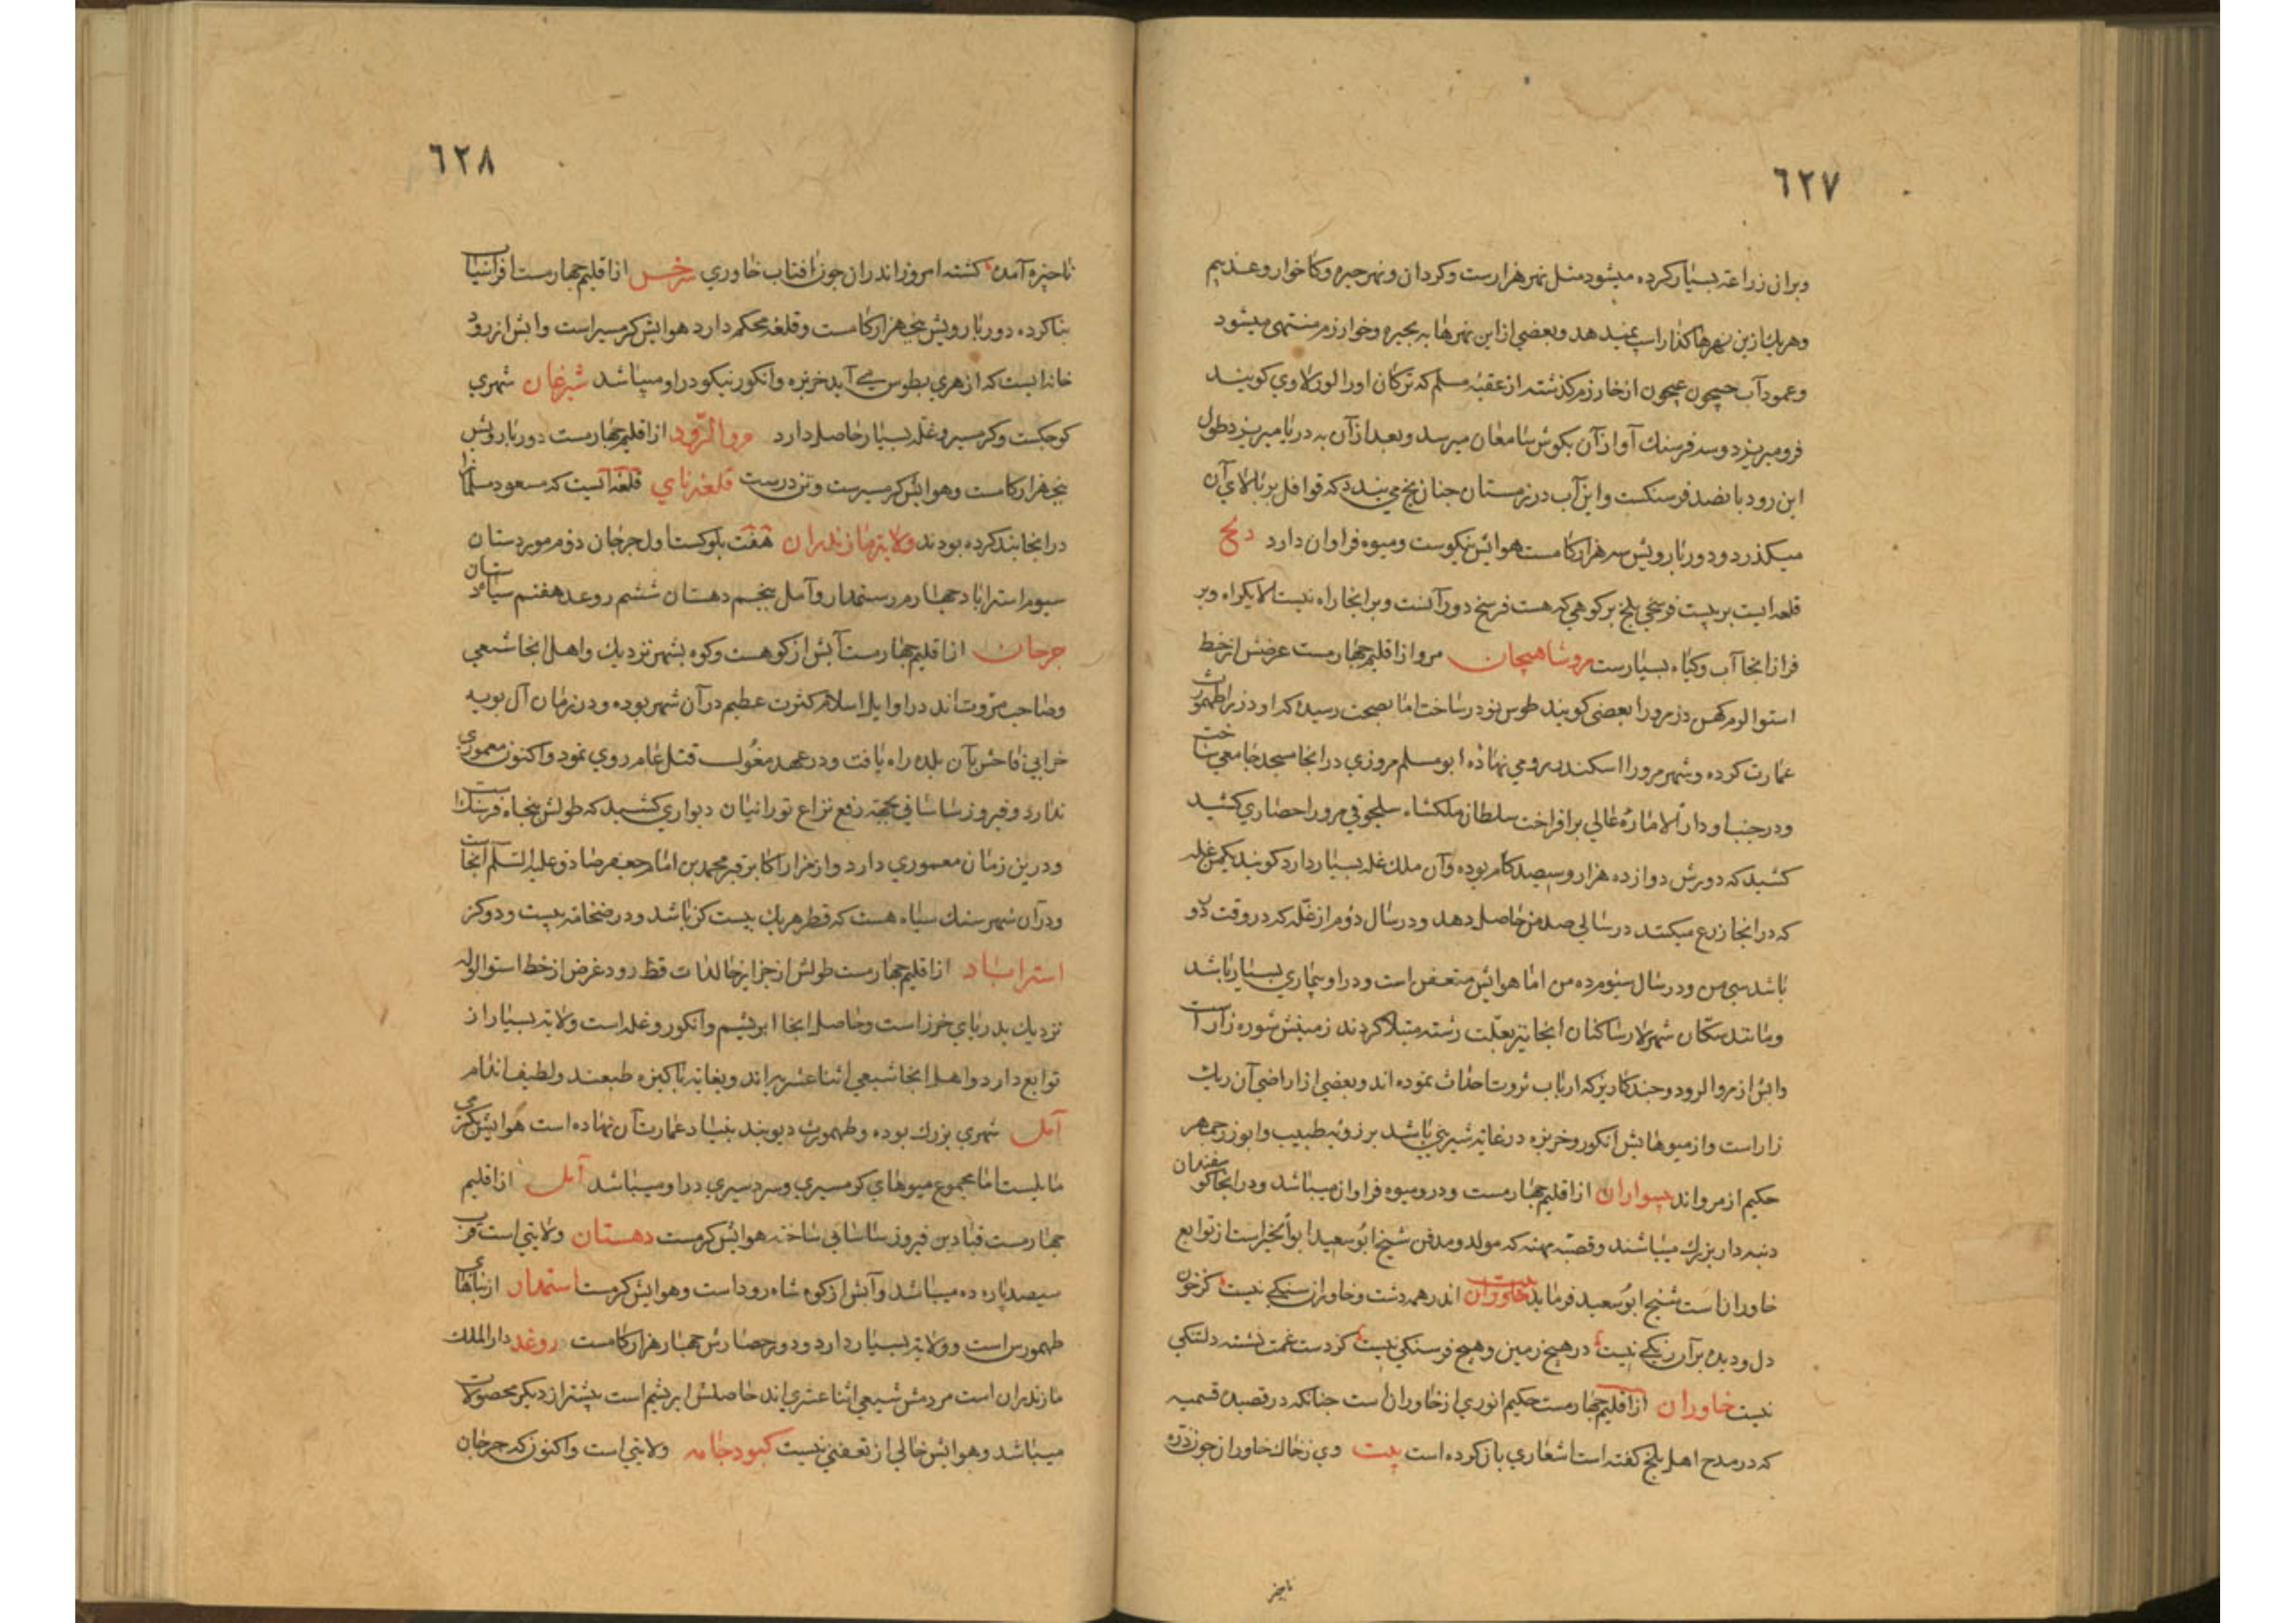 ٦٢٧
وبران زراعته بسیار کرده میشود مثل نهر هزارست وکردان ونهر جیره وکاخوار وغذیم
وهریك ازین نهرها کذار اسپ نمیدهد وبعضی از این نهرها به بحیره وخوارزم منتهی میشود
وعمود آب جیحون از خارزم کذشته از عقبه مسلم که ترکان اورا کویند
فرو میریزد وسه فرسنك آواز آن بکوش سامعان میرسد وبعد از آن به دریا میریزد طول
این رود پانصد فرسنکست واین آب در زمستان چنان یخ می بندد که قوافل بر بالای آن
میکذرد ودور بارویش سه هزار کامست هوایش نیکوست ومیوه فراوان دارد
قلعه ایست بر بیست فرسخی بلخ بر کوهی که هست فرسخ دور آنست وبر انجا راه نیست الا یکراه وبر
فراز انجا آب وکیاه بسیارست مروشاهیجان مرو از اقلیم چهارمست عرضش از خط
استوا لومر کهن دز مرورا بعضی کویند طوس نوذر ساخت اما بصحت رسیده که او دزرا طهمورث
عمارت کرده وشهر مرورا اسکندر رومی نهاده ابومسلم مروزی در انجا مسجد جامعی ساخت
ودر جنب او دار الاماره عالی بر افراخت سلطان ملکشاه سلجوقی مرورا حصاری کشید
کشید که دورش دوازده هزار وسیصد کام بوده وآن ملك غله بسیار دارد کویند یکمن غله
که در انجا زرع میکنند در سالی صد من حاصل دهد ودر سال دوم از غله که در وقت دو
باشد سی من ودر سال سیوم ده من اما هوایش متعفن است ودر او بیماری بسیار باشد
ومانند سکان شهر لار ساکنان انجا نیز بعلت رشته مبتلا کردند زمینش شوره زار است
وابش از مروالرود وچند کاریز که ارباب ثروت احداث نموده اند وبعضی از اراضی آن ریك
زار است واز میوهایش انکور وخربزه در غایة شیرینی باشد برزویه طبیب وابوزرجمهر
حکیم از مرو اند پسواران از اقلیم چهارمست ودرو میوه فراوان میباشد ودر انجا کوسفندان
دنبه دار بزرك میباشند وقصبه مهنه که مولد ومدفن شیخ ابوسعید ابوالخیر است از توابع
خاوران است شیخ ابوسعید فرماید بیت اندر همه دشت خاوران سنکی نیست کز خون
دل ودیده بر آن رنکی نیست در هیچ زمین وهیچ فرسنکی نیست کز دست غمت نشسته دلتنکی
نیست خاوران از اقلیم چهارمست حکیم انوری از خاوران است چنانکه در قصیده قسمیه
که در مدح اهل بلخ کفته است اشعاری بان کرده است بیت وی ز خاك خاوران چون ذره
ناچیز
٦٢٨
ناچیزه آمده کشته امروز اندران چون افتاب خاوری سرخس از اقلیم چهارمست افراسیاب
بنا کرده دور بارویش پنج هزار کامست وقلعه محکم دارد هوایش کرمسیر است وابش از رود
خانه ایست که از هری بطوس می آید خربزه وانکور نیکو در او میباشد شبرغان شهری
کوچکست وکرمسیر وغله بسیار حاصل دارد مروالرود از اقلیم چهارمست دور بارویش
پنج هزار کامست وهوایش کرمسیرست وتندرست قلعه نای قلعه آنیست که مسعود سلمانرا
در انجا بند کرده بودند ولایة مازندران هفت بلوکست اول جرجان دوم موردستان
سیوم استراباد چهارم رستمدار وآمل پنجم دهستان ششم روعد هفتم سیاه رستان
جرجان از اقلیم چهارمست آبش از کوهست وکوه بشهر نزدیك واهل انجا شیعی
وصاحب مروت اند در اوایل اسلام کثرت عظیم در آن شهر بوده ودر زمان آل بویه
خرابی فاحش بآن بلده راه یافت ودر عهد مغول قتل عام روی نمود واکنون معموری
ندارد وفیروز ساسانی بجهة دفع نزاع تورانیان دیواری کشید که طولش پنجاه فرسنك است
ودرین زمان معموری دارد واز مزار اکابر قبر محمد بن امام جعفر صادق علیه السلم انجاست
ودر آن شهر سنك سیاه هست که قطر هریك بیست کز باشد ودر ضخامة بیست ودو کز
استراباد از اقلیم چهارمست طولش از جزایر خالدات فظ رود عرض از خط استوا لوله
نزدیك بدریای خزر است وحاصل انجا ابریشم وانکور وغله است ولایة بسیار از
توابع دارد واهل انجا شیعی اثنا عشریه اند وبغایة پاکیزه طبعند ولطیف اندام
آمل شهری بزرك بوده وطهمورث دیوبند بنیاد عمارت آن نهاده است هوایش بکرمی
مایلست اما مجموع میوهای کرمسیری وسردسیری در او میباشد آمل از اقلیم
چهارمست قباد بن فیروز ساسانی ساخته هوایش کرمست دهستان ولایتی است قرب
سیصد پاره ده میباشد وآبش از کوه شاه رود است وهوایش کرمست استمدار از بناهای
طهمورس است وولایة بسیار دارد ودور حصارش چهار هزار کامست روغد دار الملك
مازندران است مردمش شیعی اثنا عشری اند حاصلش ابریشم است بیشتر از دیکر محصولات
میباشد وهوایش خالی از تعفنی نیست کبودجامه ولایتی است واکنون که جرجان